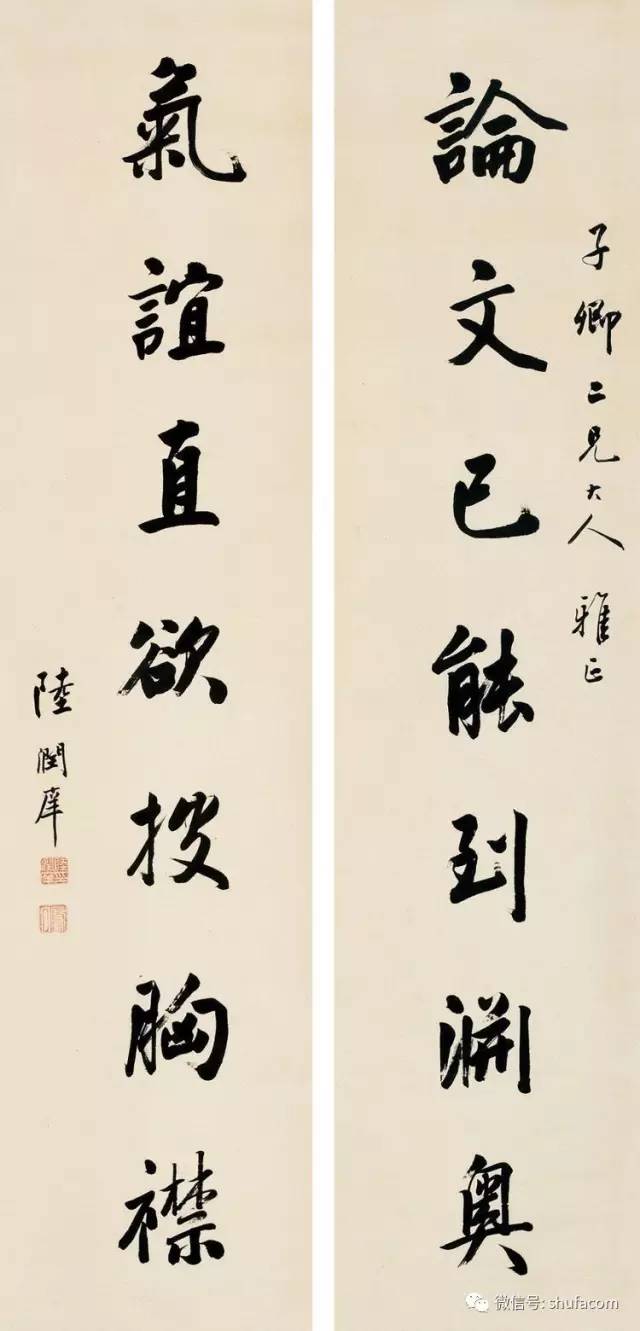 子卿二兄大人 雅正
論文已能到淵奧
氣誼直欲披胸襟
陸潤庠
微信号: shufacom